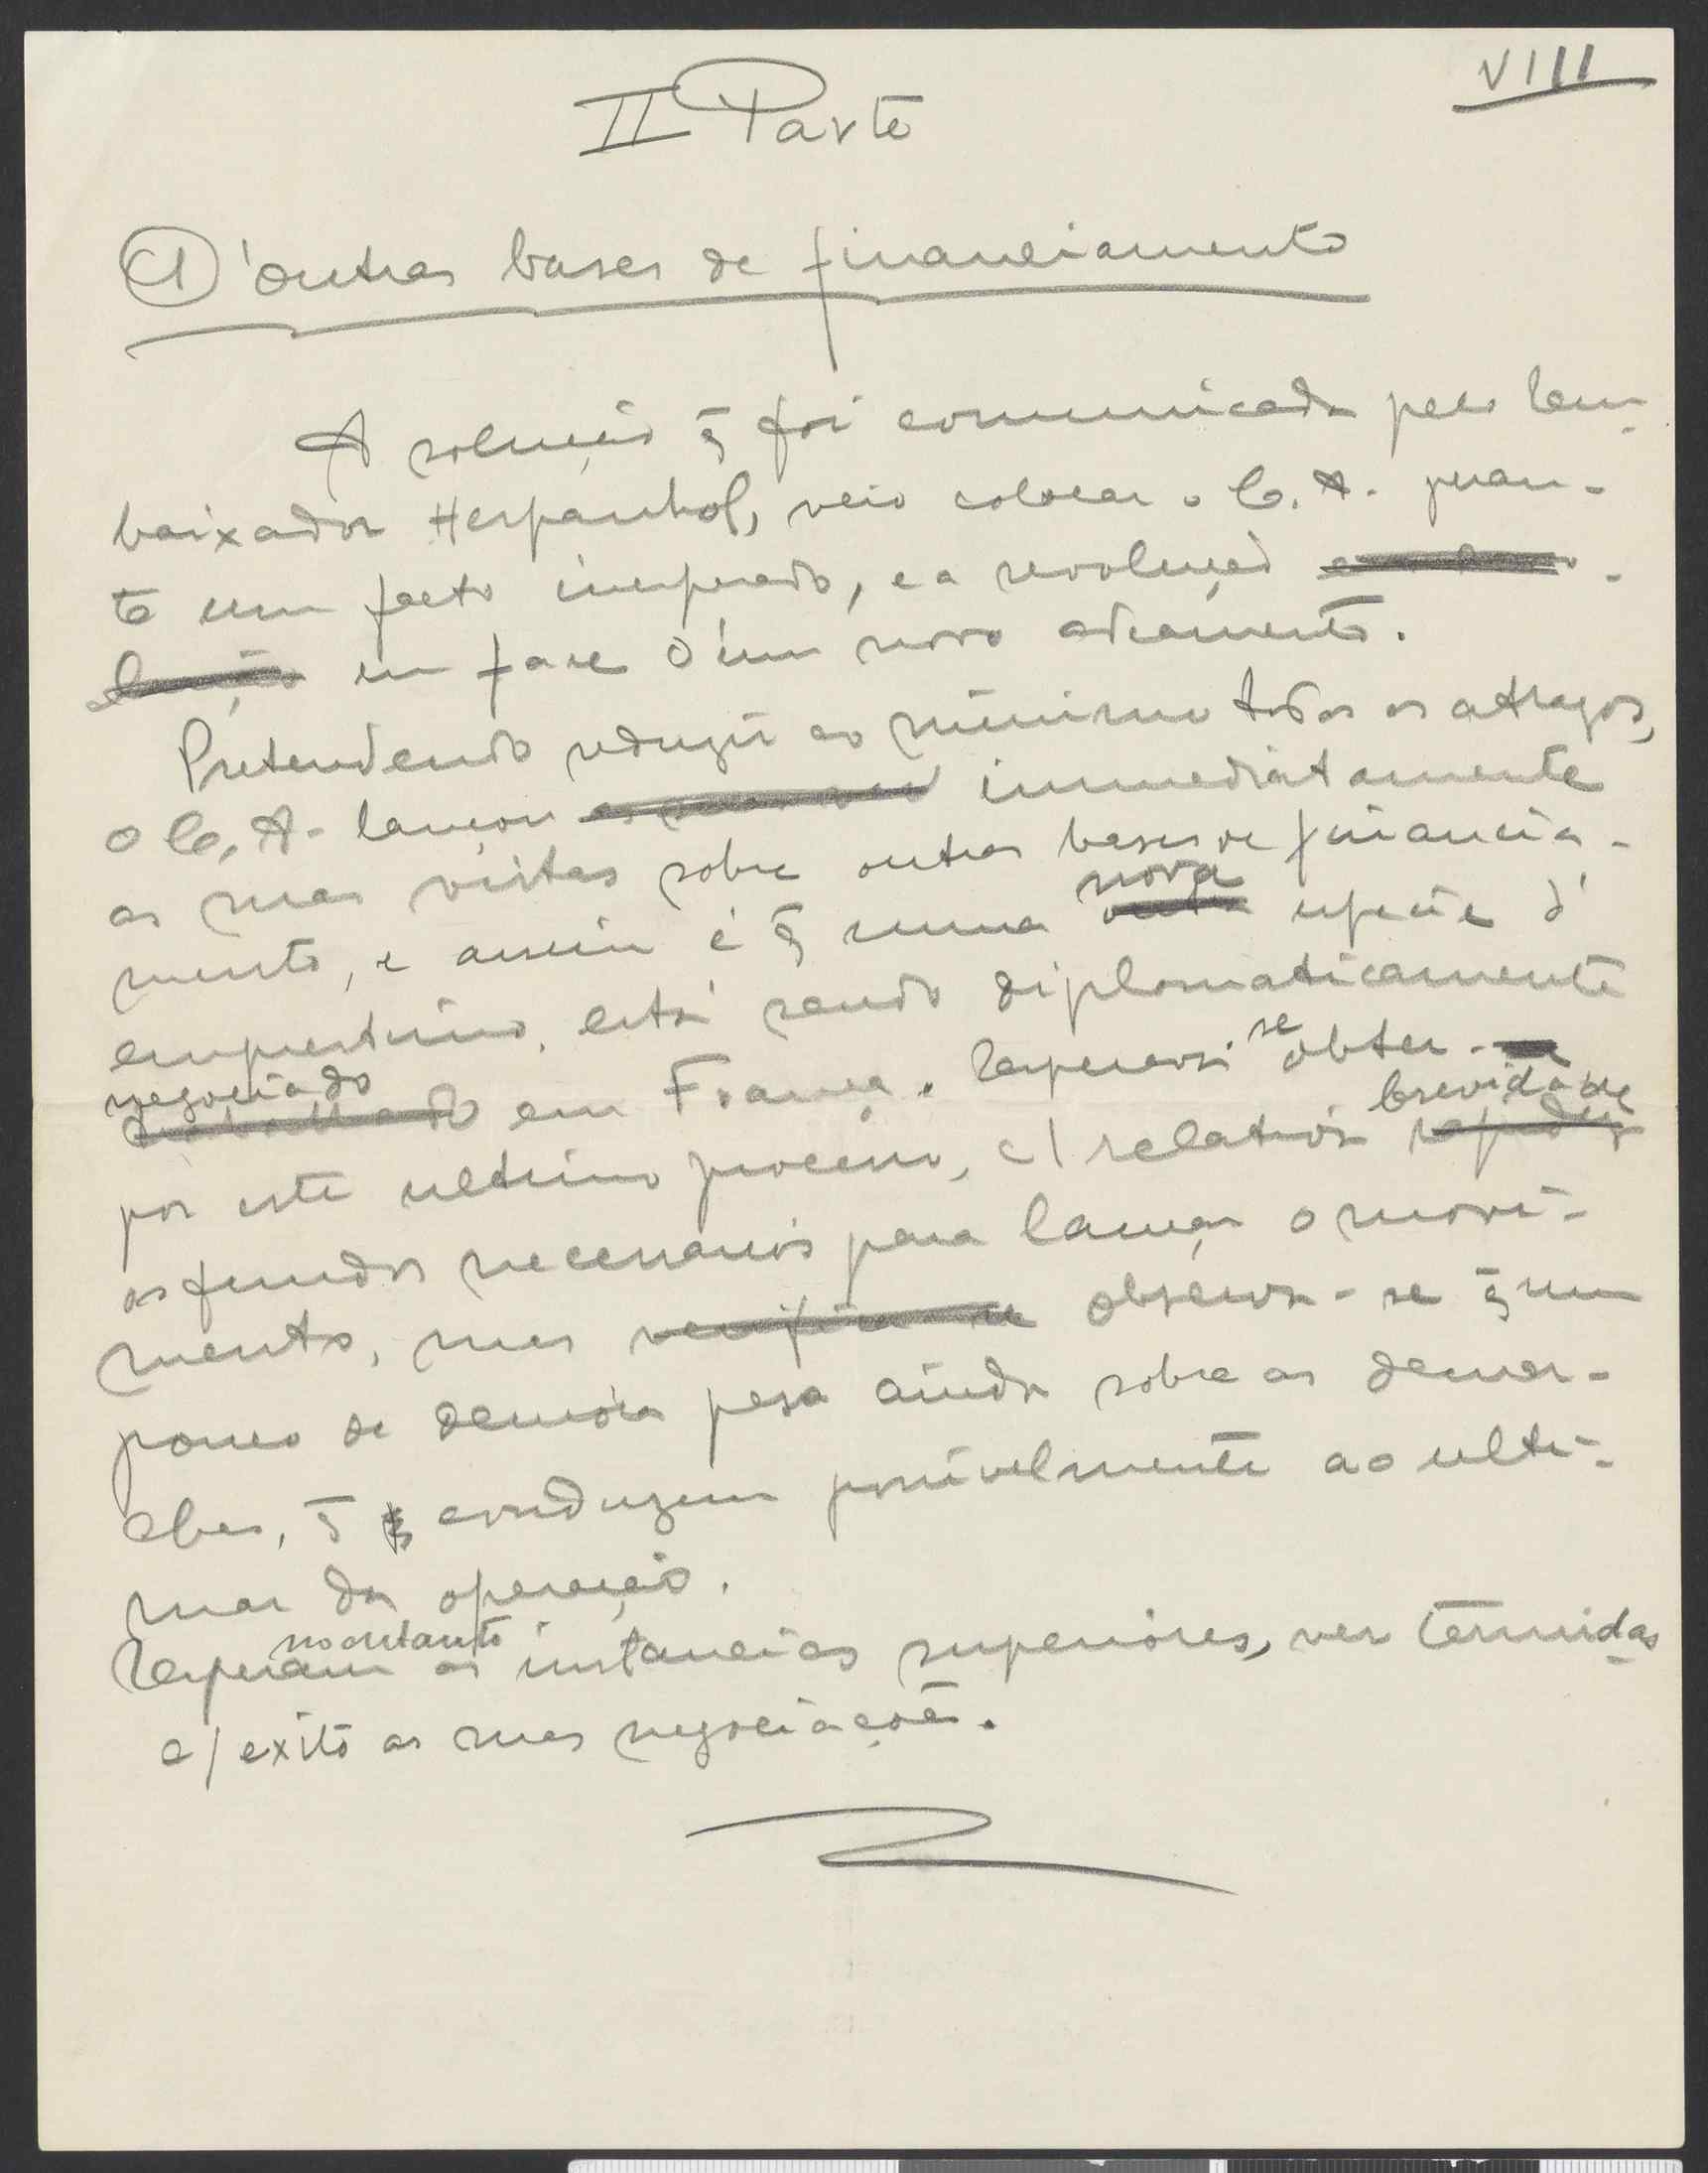 VIII
II Parte
① Outras bases de financiamento
A solução q̃ foi comunicada pelo Em-
baixador Hespanhol, veio colocar o C. A. peran-
te um facto inesperado, e a revolução
em face d'um novo adeamento.
Pretendendo reduzir ao minimo todos os atrazos,
o C. A. lançou immediatamente
as suas vistas sobre outras bases de financia-
mento, e assim é q̃ numa nova especie d'
emprestimo, está sendo diplomaticamente
negociado em França. Espera-se obter
por este ultimo processo, c/ relativa brevidade
os fundos necessarios para lançar o movi-
mento, mas verifica-se observa-se q̃ um
pouco de demora pesa ainda sobre as demar-
ches, q̃ conduzem possivelmente ao ulti-
mar da operação.
Esperam no entanto as instancias superiores, ver termidas
c/ exito as suas negociações.